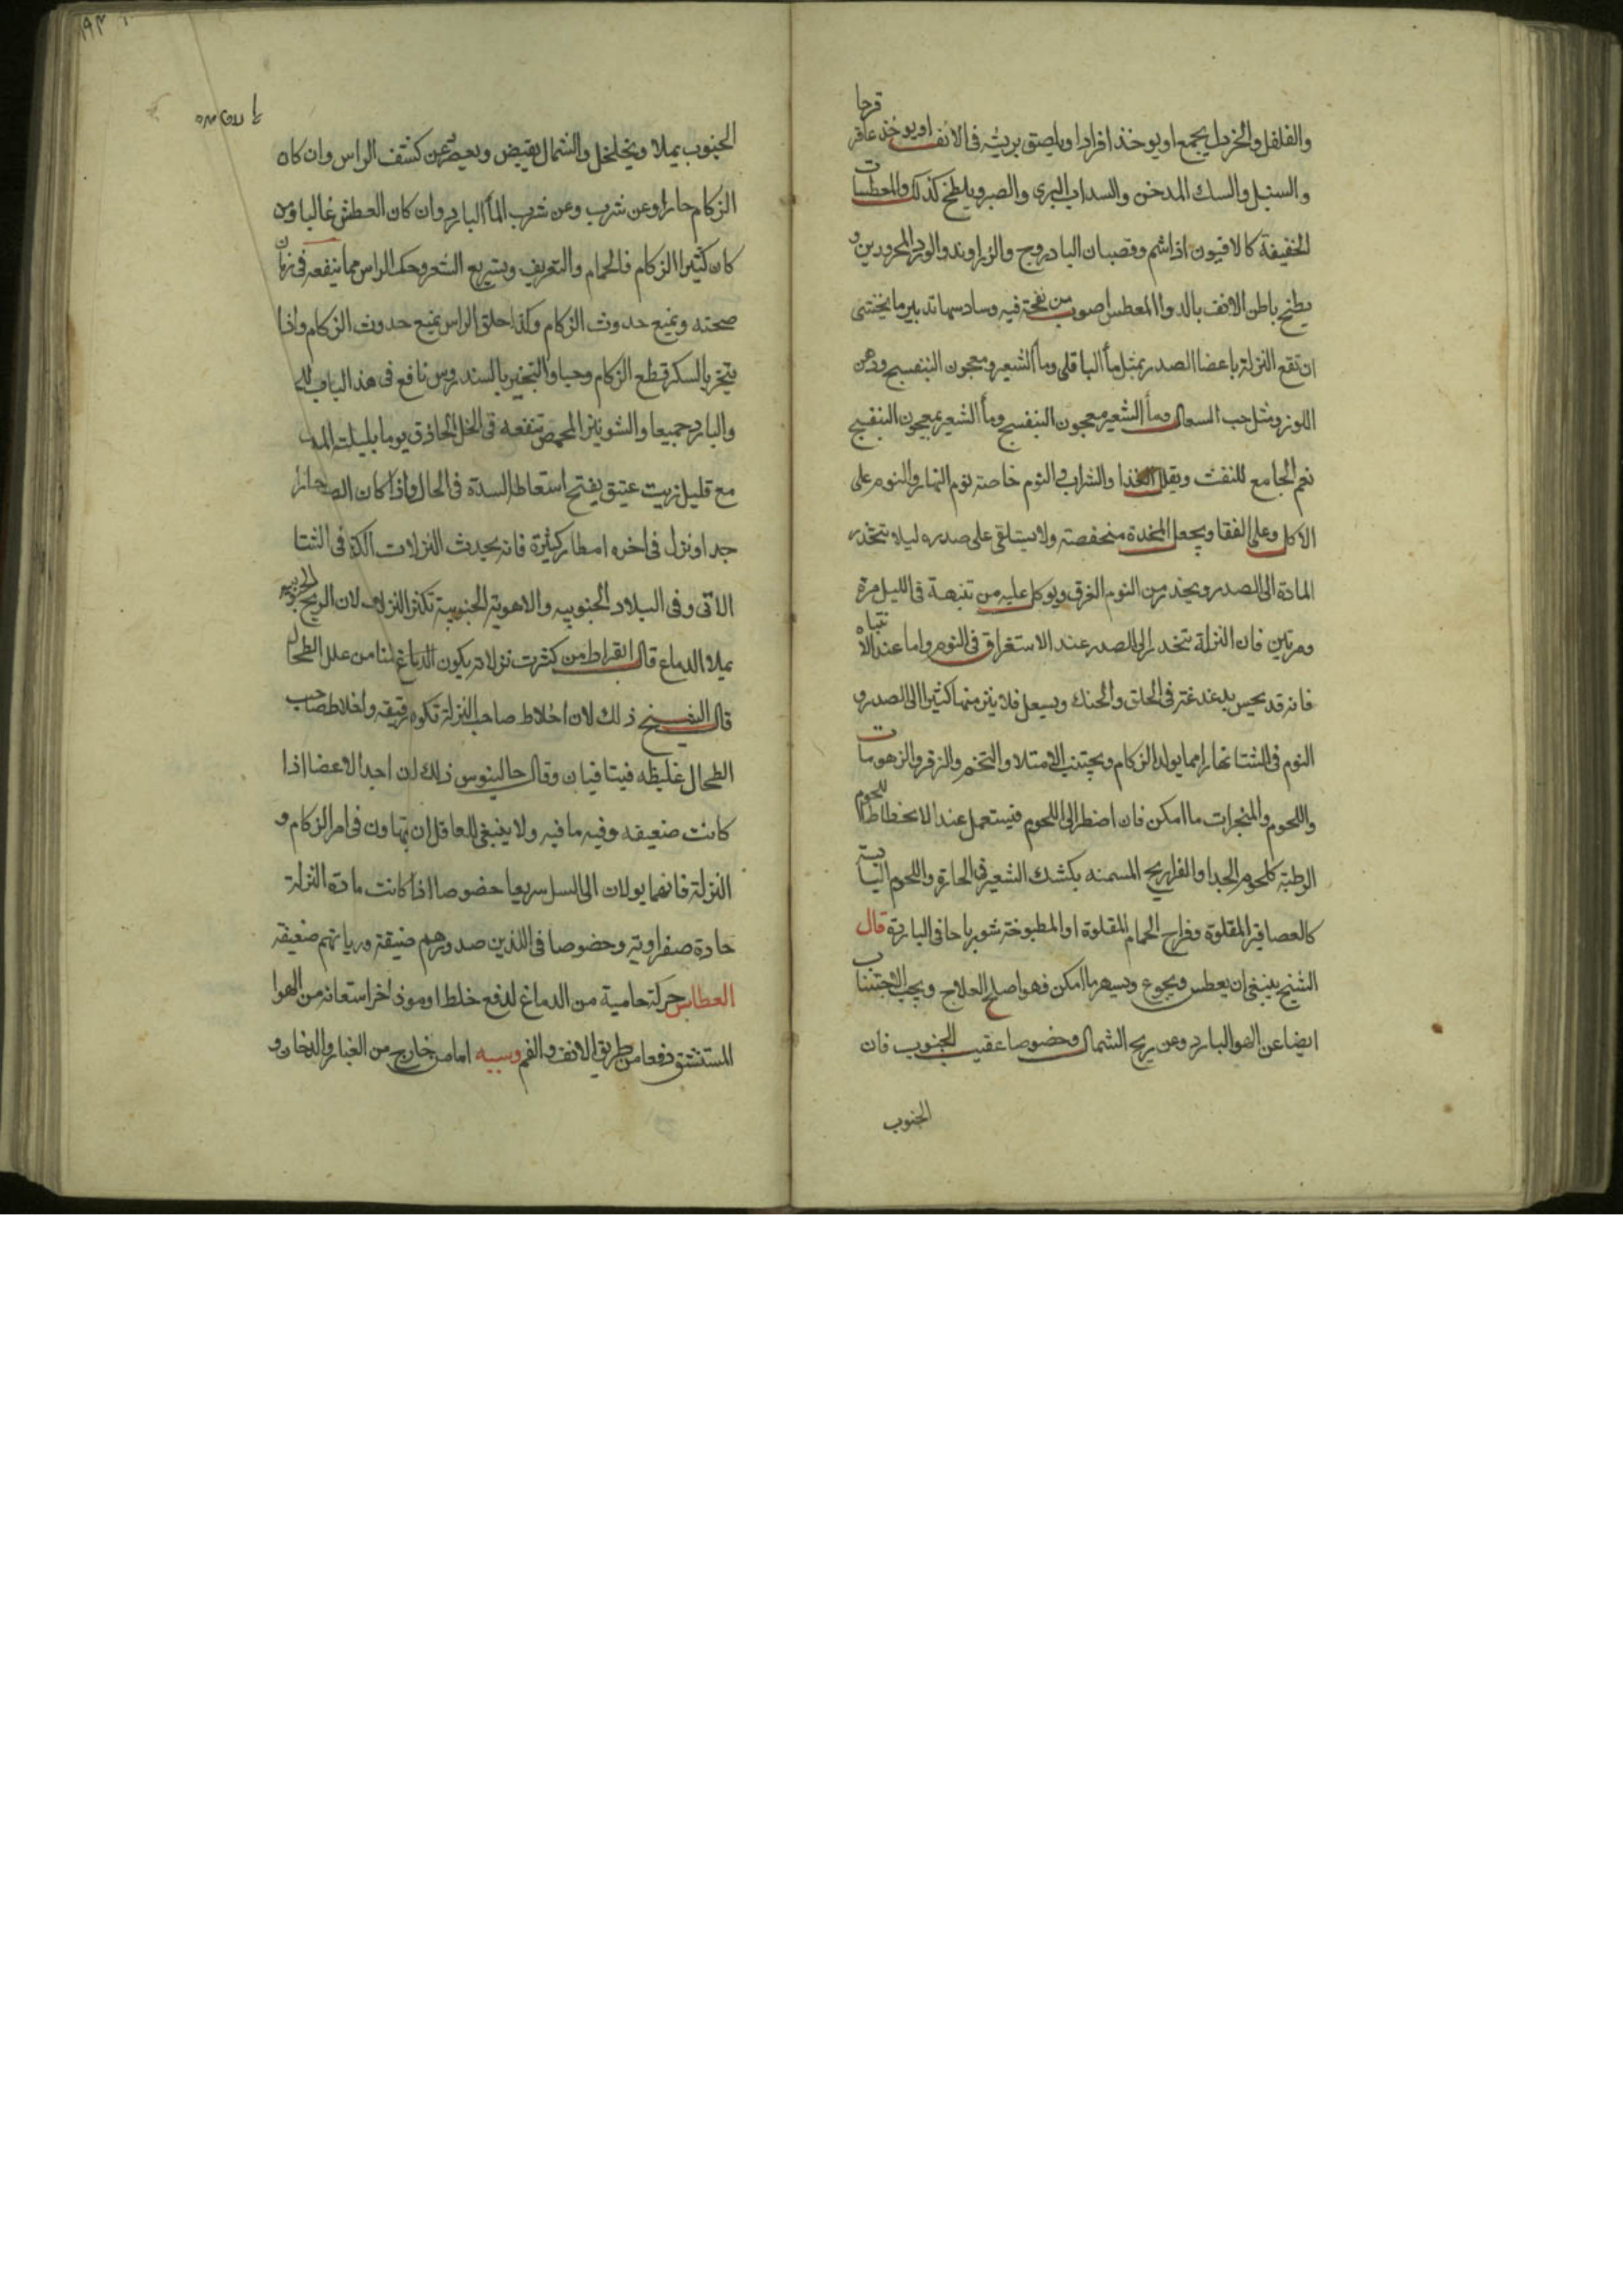 والفلفل والخردل يجمع او يوخذ افرادا ويلصق بريشه فى الانف او يوخذ عاقر قرحا
والسنبل والسك المدخن والسداب البرى والصبر ويلطخ كذلك والمعطسات
الخفيفة كالافيون اذا شم وقصبان البادروج والزراوند والورد المحرورين و
يطلخ باطن الانف بالدوا المعطس اصوب من نفخة فيه وسادسها تدبير ما يختشى
ان تقع النزلة باعضا الصدر بمثل مأ الباقلى ومأ الشعير ومعجون البنفسج ودهن
اللوز ومثل حب السعال ومأ الشعير معجون البنفسج ومأ الشعير بمعجون البنفسج
نعم الجامع للنفث ويقلل الغذا والشراب والنوم خاصة نوم النهار والنوم على
الاكل وعلى القفا ويجعل المخدة منخفصة ولا يستلقى على صدره ليلا تتحذر
المادة الى الصدر ويحذر من النوم الغرق ويوكل عليه من تنبهة فى الليل مرة
ومرتين فان النزلة تنحدر الى الصدر عند الاستغراق فى النوم واما عند الانتباه
فانه قد يحس بدغدغة فى الحلق والحنك ويسعل فلا ينز منها كثيرا الى الصدر و
النوم فى الشتا نهارا مما يولد الزكام ويجتنب الامتلا والتخم والزفر والزهومات
واللحوم والمبخرات ما امكن فان اضطر الى اللحوم فيستعمل عند الانحطاط اللحوم
الرطبة كلحوم الجدا والفراريج المسمنه بكشك الشعير فى الحارة واللحوم اليابسة
كالعصافير المقلوة وفراخ الحمام المقلوة او المطبوخة شورباحا فى الباردة قال
الشيخ ينبغى ان يعطس ويجوع ويسهر ما امكن فهو اصلح العلاج ويجب الاجتناب
ايضا عن الهوا البارد وعن ريح الشمال وخصوصا عقيب الجنوب فان
الجنوب
الجنوب يملا ويخلخل والشمال يقبض ويعصر عن كشف الراس وان كان
الزكام حارا وعن شرب وعن شرب المأ البارد وان كان العطش غالبا ومن
كان كثير الزكام فالحمام والتعريق وبتسريع الشعر وحك الراس مما ينفعه فى زمان
صحته ويمنع حدوث الزكام وكذا حلق الراس يمنع حدوث الزكام واذا
يتخر بالسكر قطع الزكام وحيا والتبخير بالسندروس نافع فى هذا الباب للحار
والبارد جميعا والشونيز المحمص تنفعه فى الخل الحاذق يوما بليلته
مع قليل زيت عتيق يفتح استعاطه السدة فى الحال واذا كان الصيف حارا
جدا ونزل فى اخره امطار كثيرة فانه يحدث النزلات اكثر فى الشتا
الاتى وفى البلاد الجنوبيه والاهوية الجنوبية تكثر النزلات لان الريح الجنوبيه
يملا الدماغ قال ابقراط من كثرت نزلاته يكون الدماغ لنا من علل الطحال
قال الشيخ ذلك لان اخلاط صاحب النزلة تكون رقيقه واخلاط صاحب
الطحال غليظه فيتنافيان وقال جالينوس ذلك لان احد الاعضا اذا
كانت ضعيفه وفيه ما فيه ولا ينبغى للعاقل ان يتهاون فى امر الزكام و
النزلة فانهما يولان الى السل سريعا خصوصا اذا كانت مادة النزلة
حادة صفراوية وخصوصا فى الذين صدورهم ضيقة ورياتهم ضعيفة
العطاس حركة حامية من الدماغ لدفع خلط او موذ اخر استعانه من الهوا
المستنشق دفعا من طريق الانف والفم وسببه اما من خارج من الغبار والدخان و